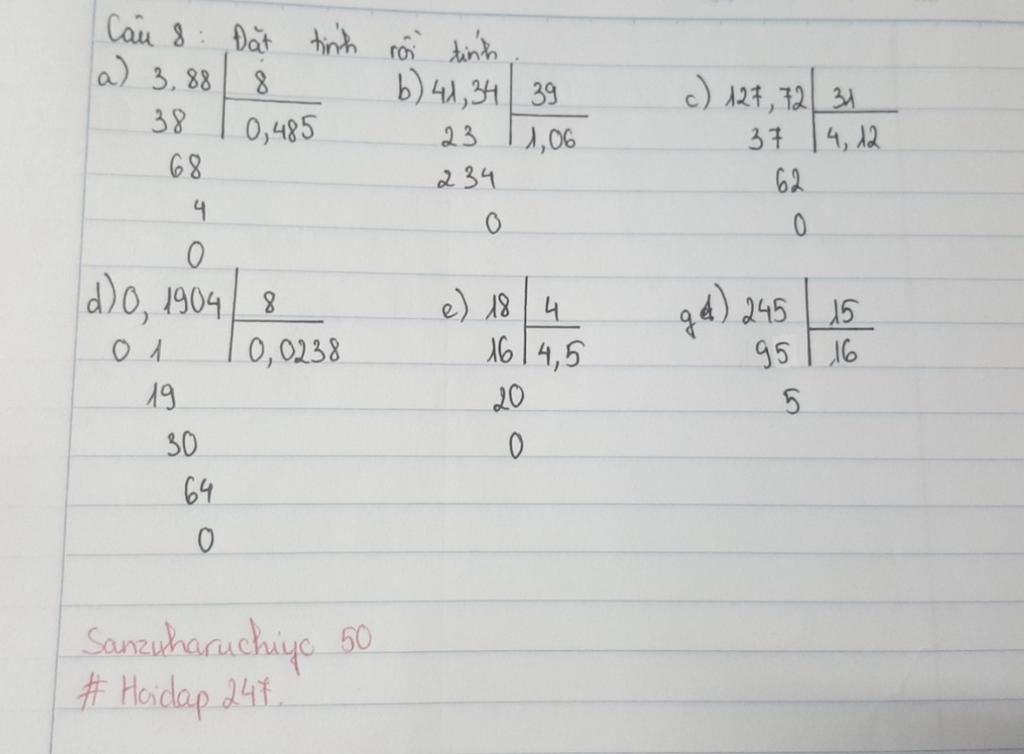 Câu 8: Đặt tính rồi tính.
a) 3,88 8
38 0,485
68
4
0
b) 41,34 39
23 1,06
234
0
c) 127,72 31
37 4,12
62
0
d) 0,1904 8
0 1 0,0238
19
30
64
0
e) 18 4
16 4,5
20
0
g) 245 15
95 16
5
Sanzuharuchiyo 50
# Hoidap 247.